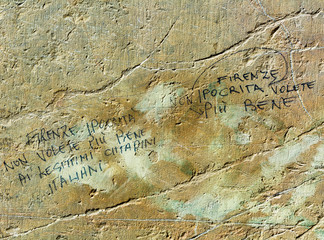 FIRENZE IPOCRITA
NON VOLETE PIU BENE
AI LEGITTIMI CITTADINI
ITALIANI
FIRENZE
NON IPOCRITA VOLETE
PIÙ BENE